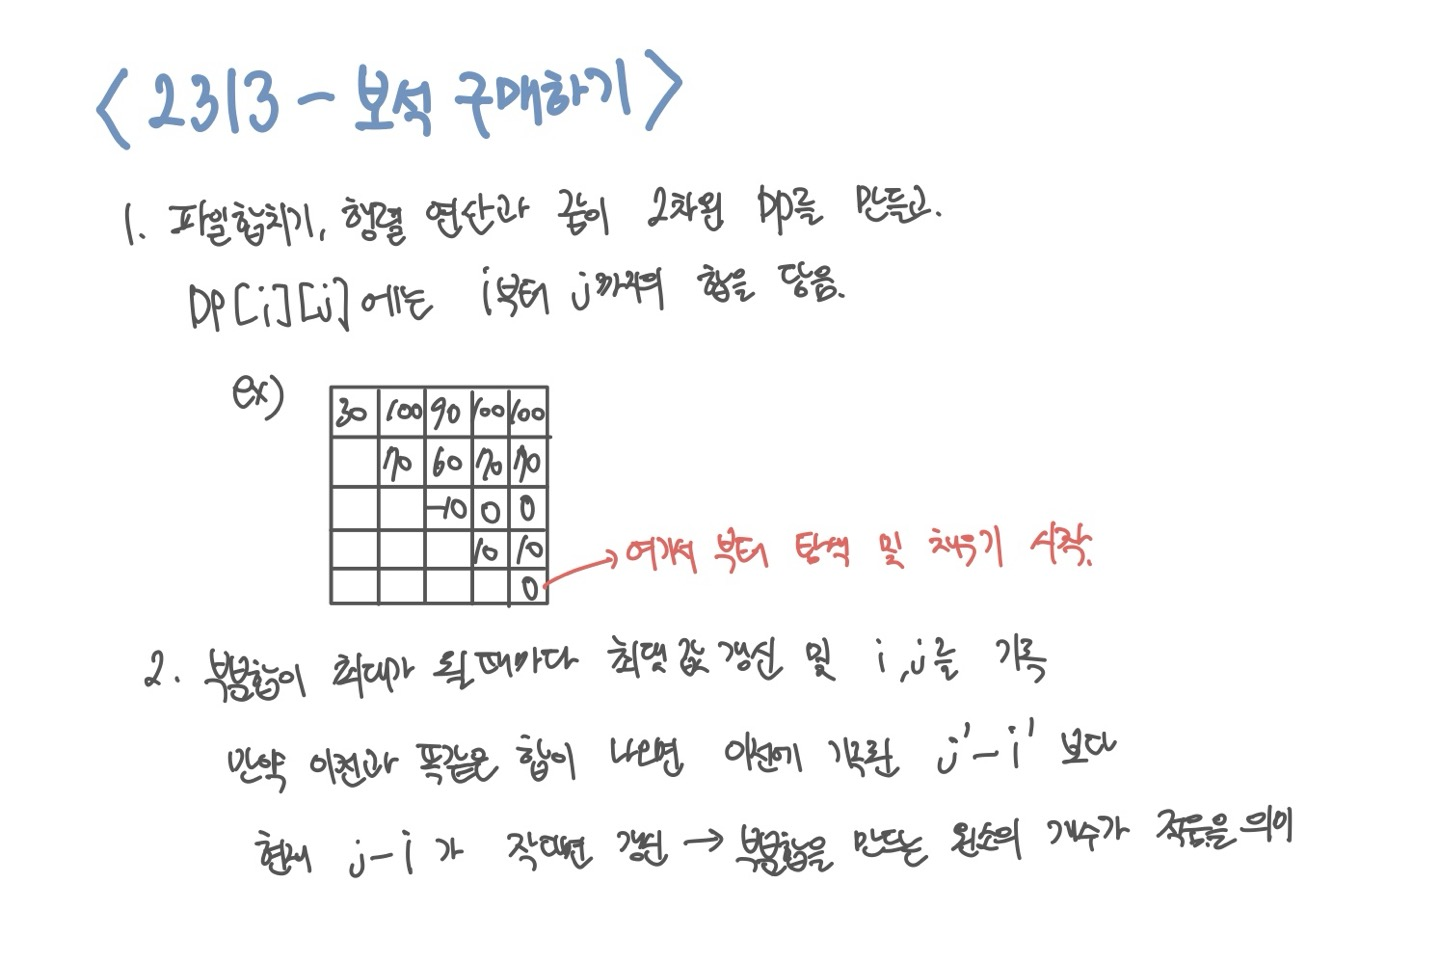 <2313 - 보석 구매하기>
1. 파일합치기, 행렬 연산과 같이 2차원 DP를 만들고.
DP[i][j]에는 i부터 j까지의 합을 담음.
ex)
30 100 90 100 100
70 60 70 70
-10 0 0
10 10
0
여기서 부터 탐색 및 채우기 시작.
2. 부분합이 최대가 될때마다 최댓값 갱신 및 i,j를 기록
만약 이전과 똑같은 합이 나오면 이전에 기록한 j'-i' 보다
현재 j-i가 작다면 갱신 → 부분합을 만드는 원소의 개수가 적음을 의미